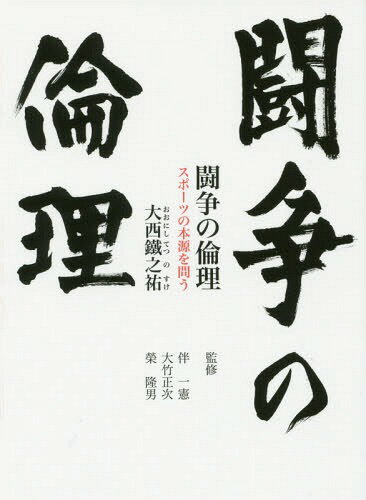 闘争の
倫理
闘争の倫理
スポーツの本源を問う
おおにしてつのすけ
大西鐵之祐
監修
伴一憲
大竹正次
榮隆男